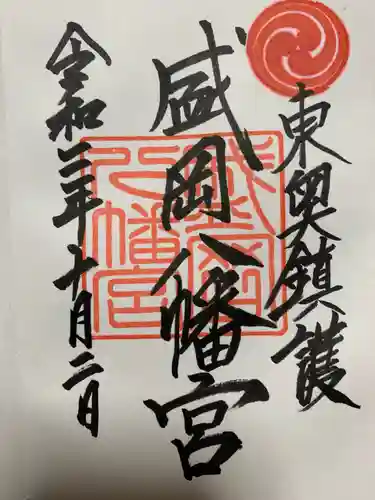 東奥鎮護
盛岡八幡宮
令和二年十月二日
盛岡八幡宮